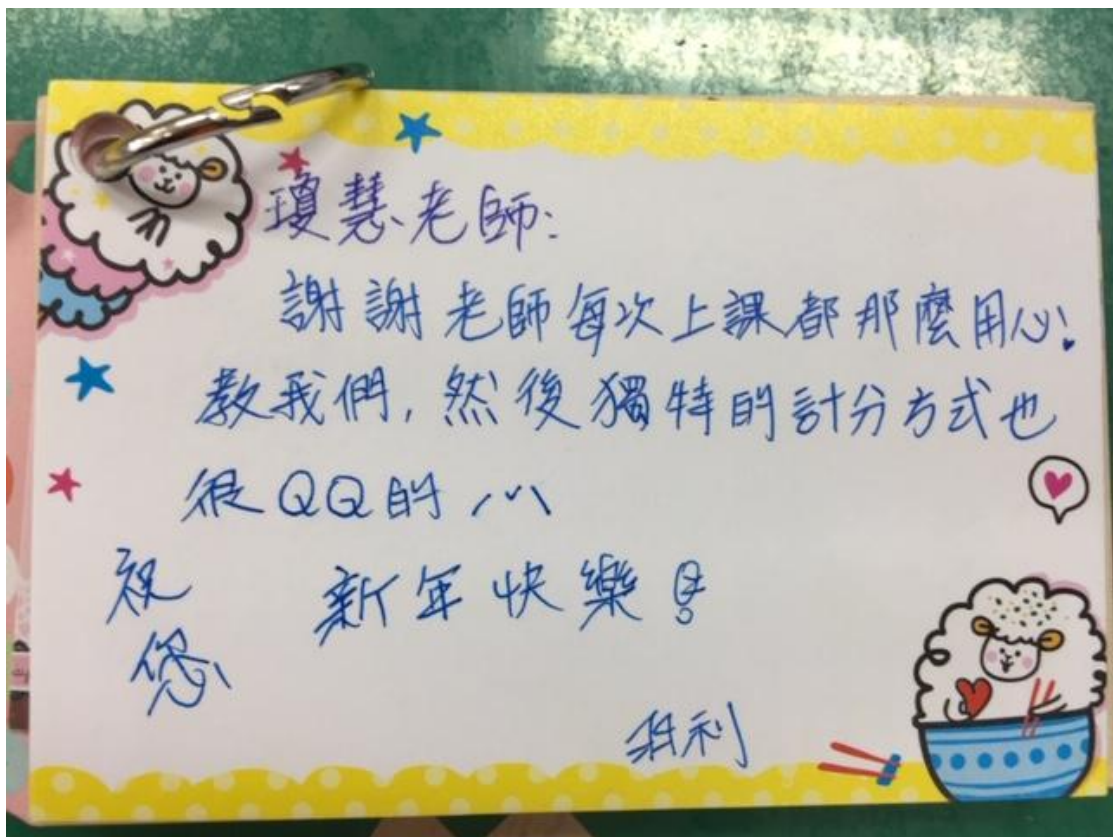 瓊慧老師:
謝謝老師每次上課都那麼用心!
教我們,然後獨特的計分方式也
很QQ的
祝 新年快樂!
您